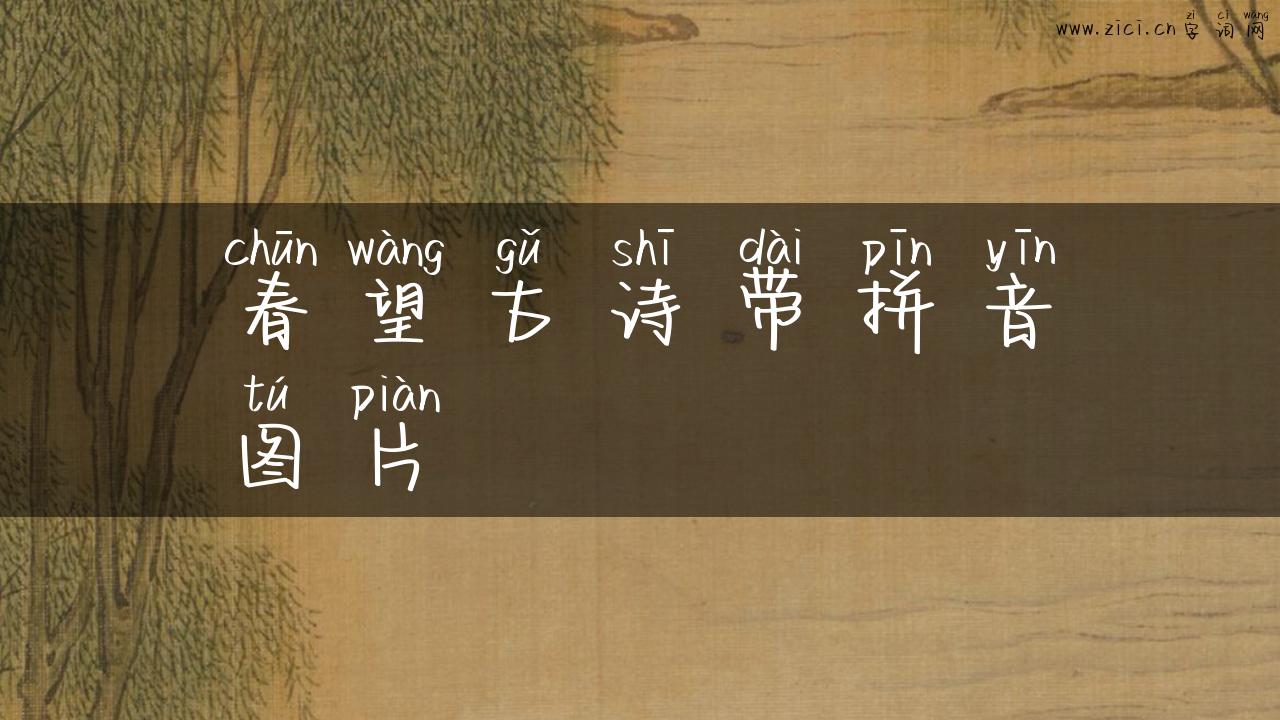 zì cí wǎng
www.zici.cn 字词网
chūn wàng gǔ shī dài pīn yīn
春望古诗带拼音
tú piàn
图片